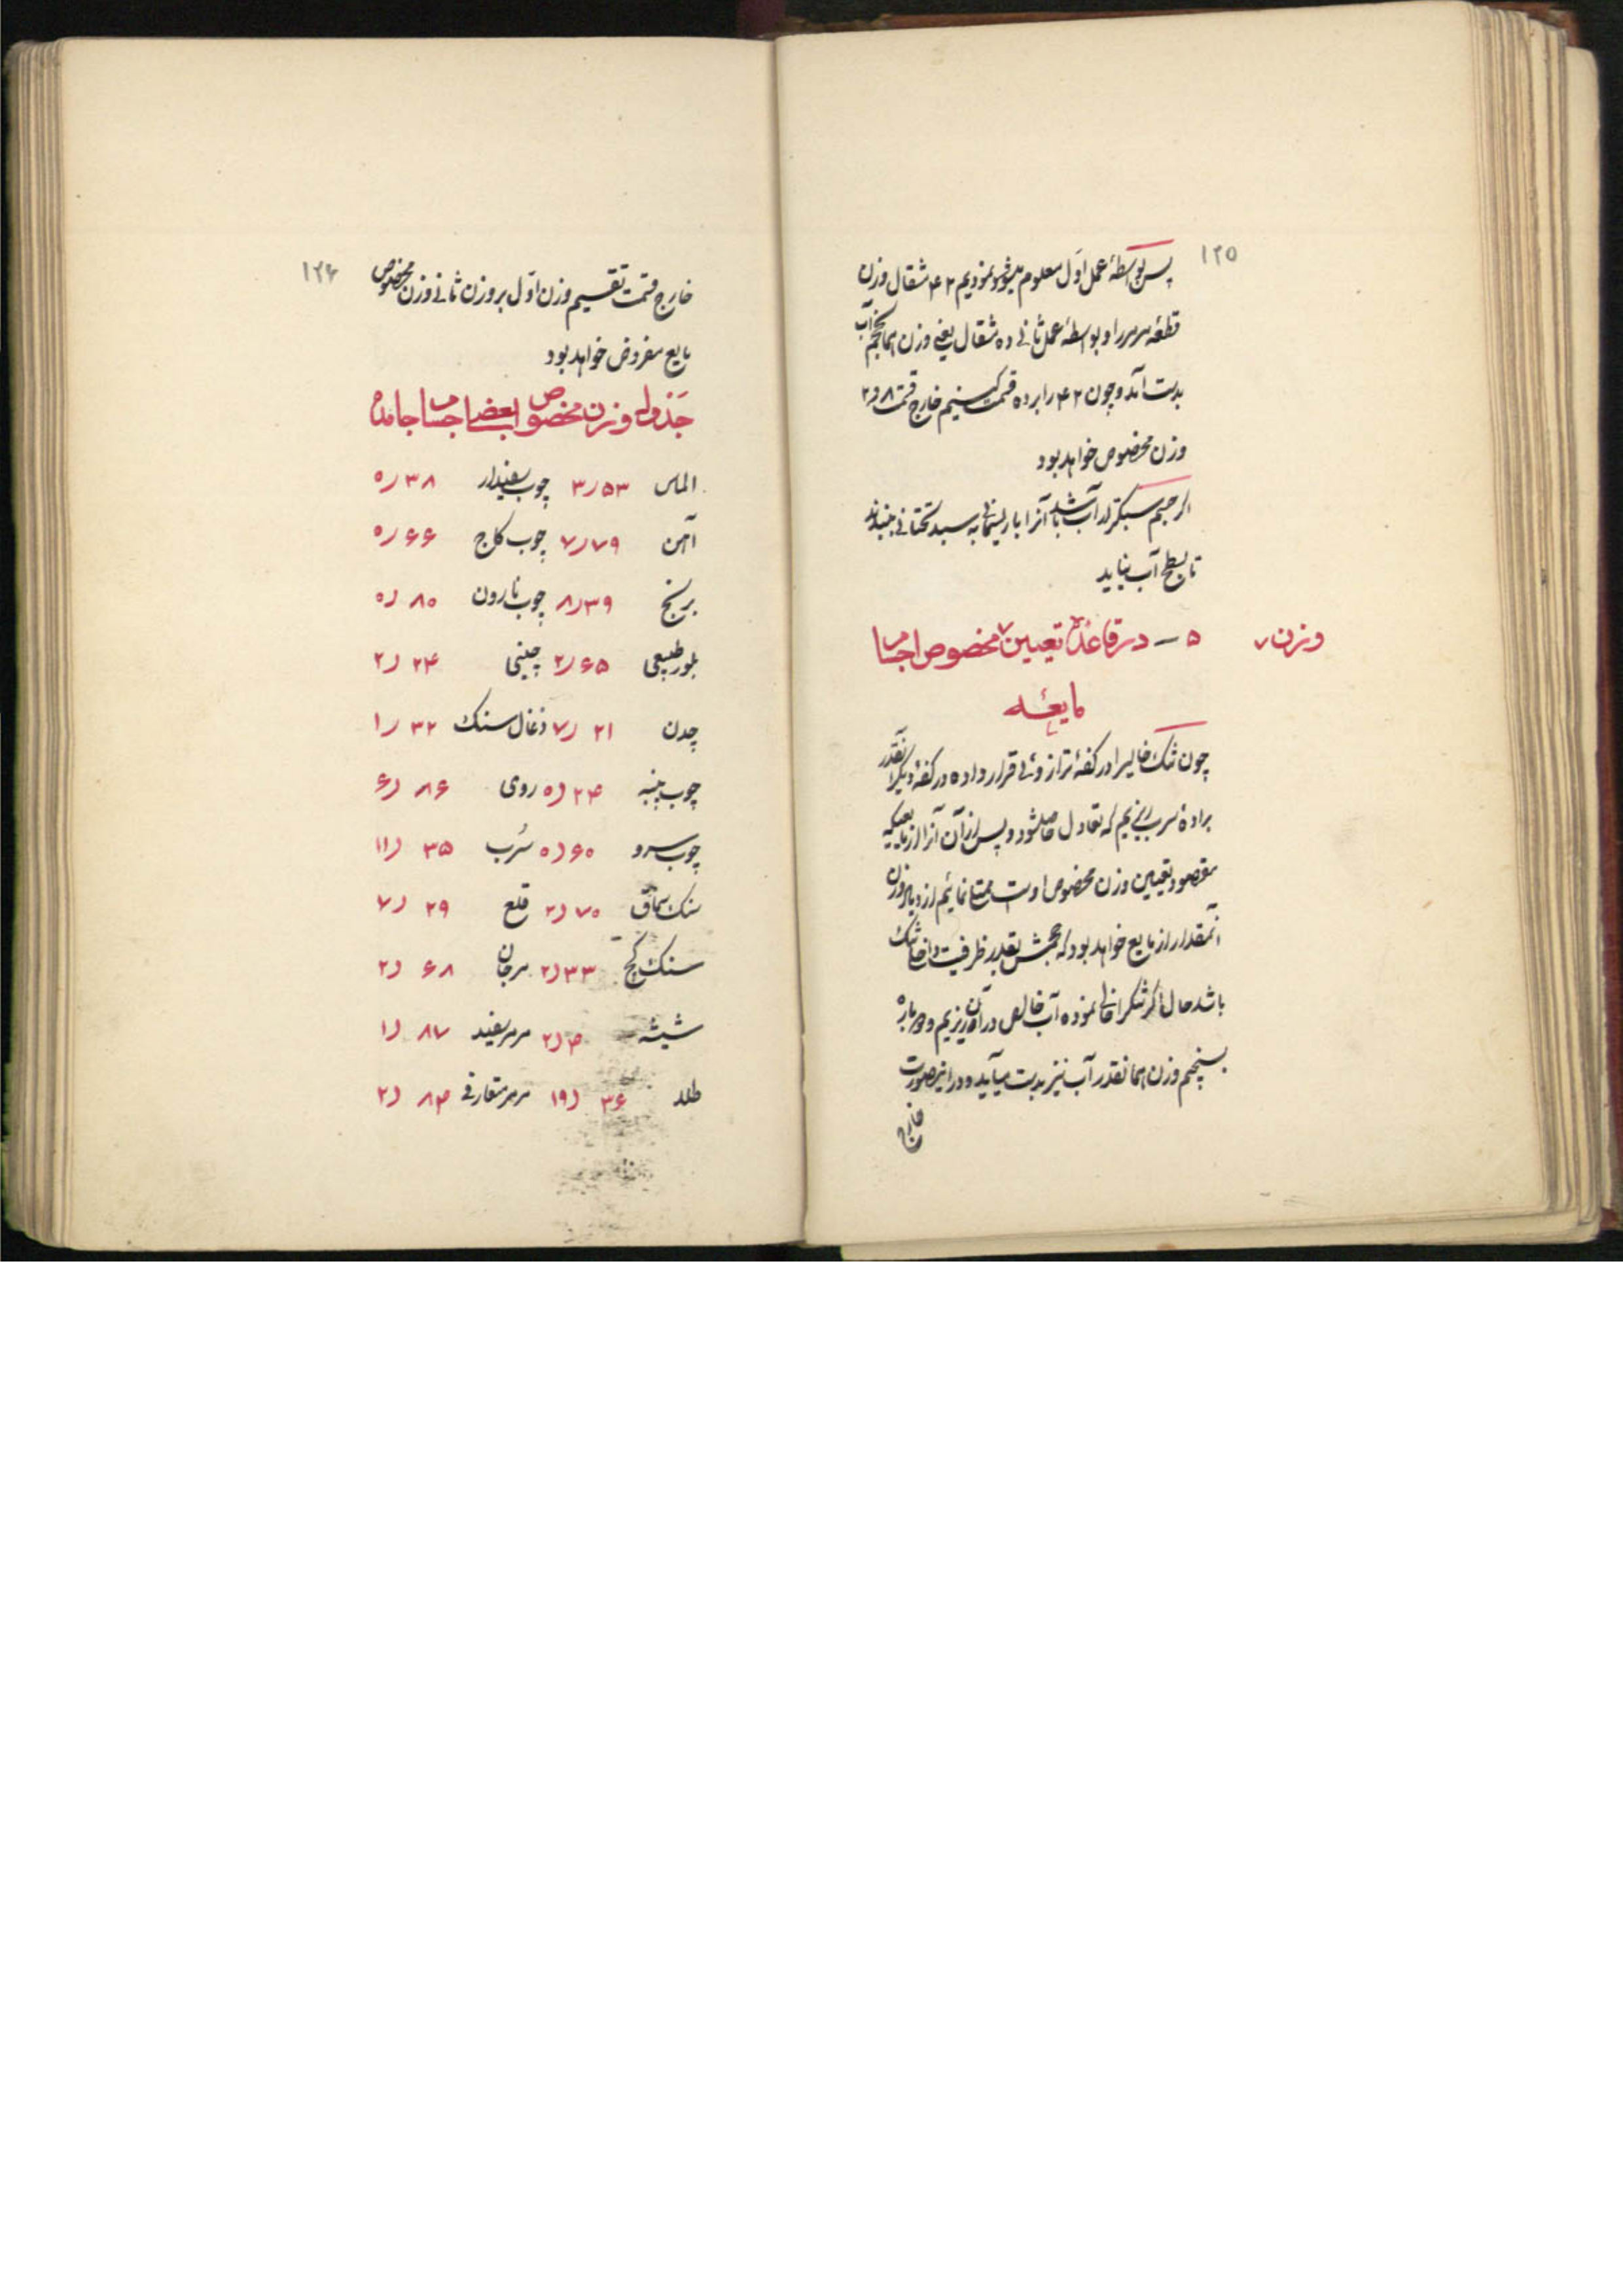 ۱۲۵
پس بواسطهٔ عمل اوّل معلوم نمودیم ۲۸ مثقال وزن
قطعهٔ مرمر را و بواسطهٔ عمل ثانی ده مثقال یعنی وزن همانحجم آب
بدست آمد و چون ۲۸ را بر ده قسمت کنیم خارج قسمت ۸ر۲
وزن مخصوص خواهد بود
اگر جسم سبکتر از آب باشد آنرا با ریسمانی به سبد تحتانی
تا بسطح آب نیاید
۵ — در قاعدهٔ تعیین وزن مخصوص اجسام
مایعه
چون تنک خالیرا در کفهٔ ترازوئی قرار داده در کفهٔ دیگر آنقدر
برادهٔ سرب بریزیم که تعادل حاصلشود و پس از آن آنرا از مایعیکه
مقصود تعیین وزن مخصوص اوست ممتلی نمائیم ازدیاد وزن
آنمقدار از مایع خواهد بود که حجمش بقدر ظرفیت داخل تنک
باشد حال اگر تنکرا خالی نموده آب خالص در آن بریزیم و دوباره
بسنجیم وزن همانقدر آب نیز بدست میآید و در اینصورت
خارج
۱۲۶
خارج قسمت تقسیم وزن اوّل بر وزن ثانی وزن مخصوص
مایع مفروض خواهد بود
جدول وزن مخصوص بعضی اجسام جامده
الماس ۵۳ر۳ چوب سفیدار ۳۸ر۰
آهن ۷۹ر۷ چوب کاج ۶۶ر۰
برنج ۳۹ر۸ چوب نارون ۸۰ر۰
بلور طبیعی ۶۵ر۲ چینی ۲۴ر۲
چدن ۲۱ر۷ ذغال سنک ۳۲ر۱
چوب پنبه ۲۴ر۰ روی ۸۶ر۶
چوب سرو ۶۰ر۰ سُرب ۳۵ر۱۱
سنک سماق ۷۰ر۲ قلع ۲۹ر۷
سنک کچ ۳۳ر۲ مرجان ۶۸ر۲
شیشه ۴ر۲ مرمر سفید ۸۷ر۱
طلا ۳۶ر۱۹ مرمر متعارفی ۸۴ر۲